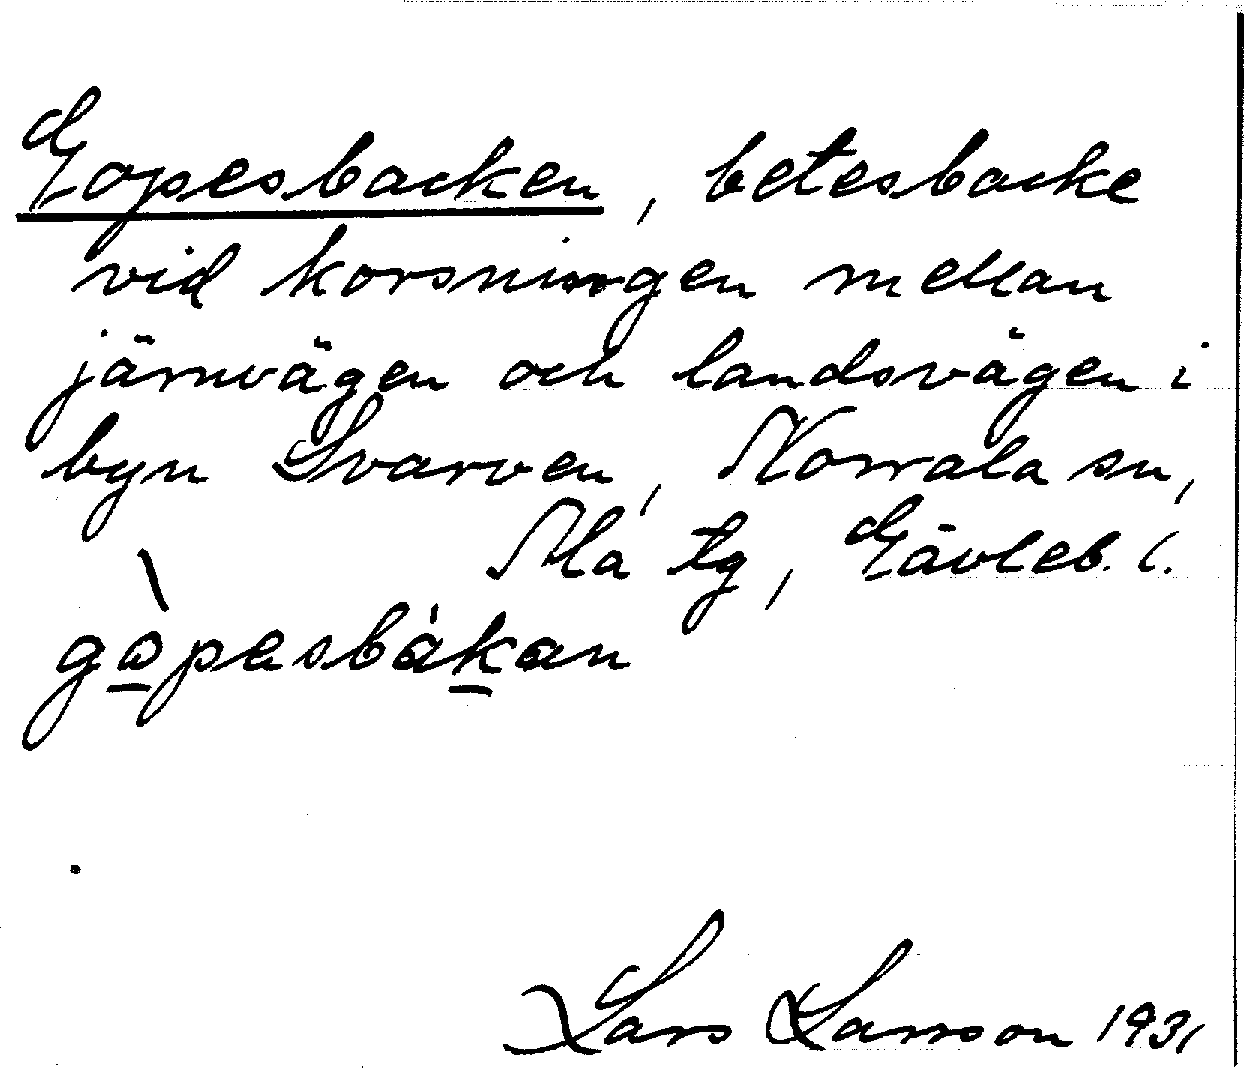 Gopesbacken, betesbacke
vid korsningen mellan
järnvägen och landsvägen i
byn Svarven, Norrala sn,
Ala tg, Gävleb. l.
gòpesbákan
Lars Larsson 1931